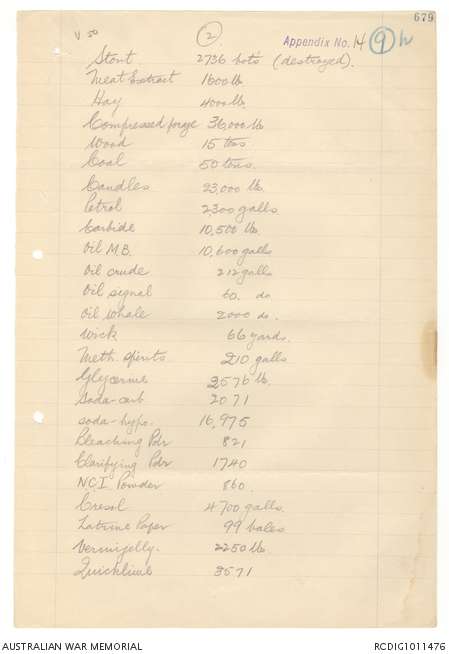 679
V 50
2
Appendix No. 14
9 h
Stout. 2736 bots (destroyed).
Meat Extract 1600 lb.
Hay 4000 lb.
Compressed forage 36,000 lb
Wood 15 tons
Coal 50 tons.
Candles 23,000 lb.
Petrol 2300 galls
Carbide 10,500 lb.
Oil M.B. 10,600 galls
Oil crude 212 galls
Oil signal 60. do
Oil whale 2000 do.
Wick 66 yards.
Meth. Spirits 210 galls
Glycerine 2576 lb.
Soda-carb 2071
soda-hypo. 16,975
Bleaching Pdr 821
Clarifying Pdr 1740
N.C.I. Powder 860.
Cresol 4700 galls.
Latrine Paper 99 bales.
Vermijelly. 2250 lb
Quicklime 3571
AUSTRALIAN WAR MEMORIAL
RCDIG1011476